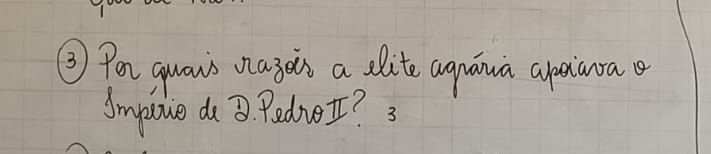 ③ Por quais razões a elite agrária apoiava o
Império de D. Pedro II? 3